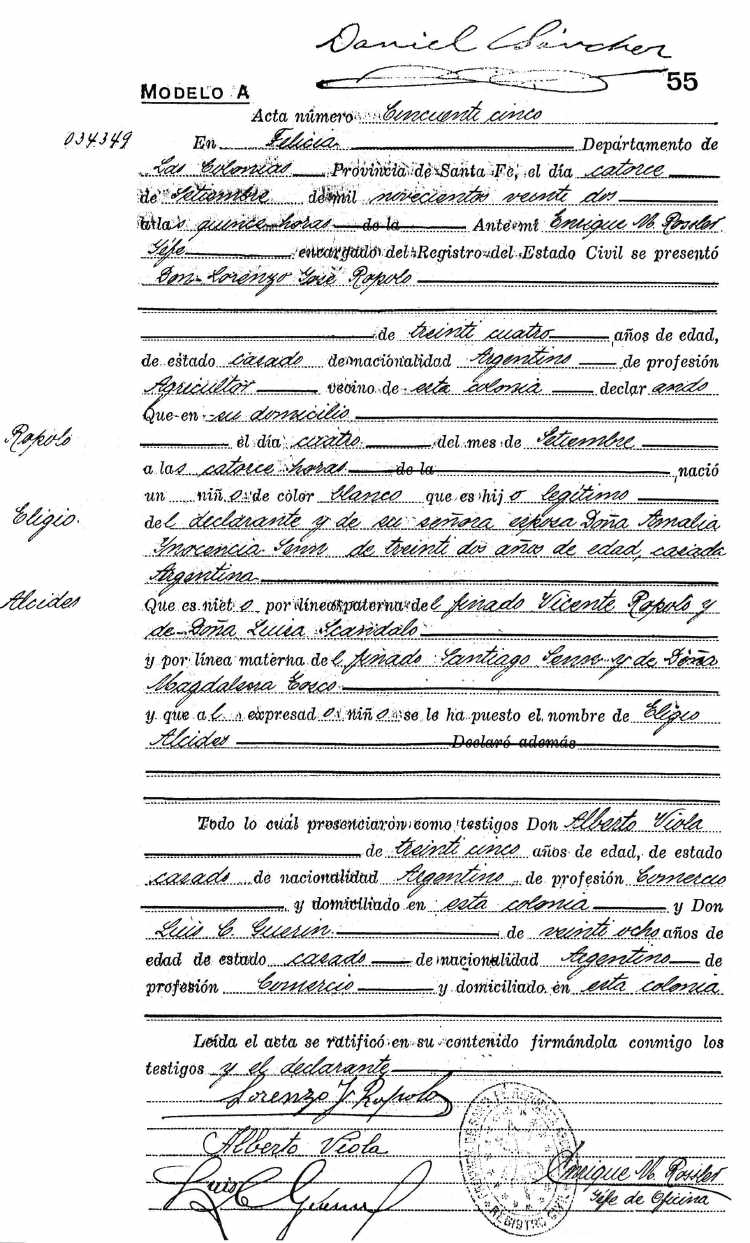 Daniel Sánchez
55
MODELO A
Acta número Cincuenti cinco
034349
En Felicia Departamento de
Las Colonias Provincia de Santa Fe, el día catorce
de Setiembre de mil novecientos veinte dos
a las quince horas de la Ante mi Enrique M. Rossler
Gefe encargado del Registro del Estado Civil se presentó
Don Lorenzo José Ropolo
de treinti cuatro años de edad,
de estado casado de nacionalidad Argentino de profesión
Agricultor vecino de esta colonia declarando
Que en su domicilio
Ropolo
el día cuatro del mes de Setiembre
a las catorce horas de la nació
un niño de color blanco que es hijo legítimo
Eligio.
del declarante y de su señora esposa Doña Amalia
Ynocencia Senn de treinti dos años de edad, casada
Argentina
Alcides
Que es nieto por línea paterna del finado Vicente Ropolo y
de Doña Luisa Scarídalo
y por línea materna del finado Santiago Senn y de Doña
Magdalena Cosco
y que al expresado niño se le ha puesto el nombre de Eligio
Alcides Declaró además
Todo lo cuál presenciaron como testigos Don Alberto Viola
de treinti cinco años de edad, de estado
casado de nacionalidad Argentino de profesión Comercio
y domiciliado en esta colonia y Don
Luis C. Guerin de veinte ocho años de
edad de estado casado de nacionalidad Argentino de
profesión Comercio y domiciliado en esta colonia
Leída el acta se ratificó en su contenido firmándola conmigo los
testigos y el declarante
Lorenzo J. Ropolo
Alberto Viola
Luis C. Guerin
Enrique M. Rossler
Gefe de Oficina
REGISTRO CIVIL